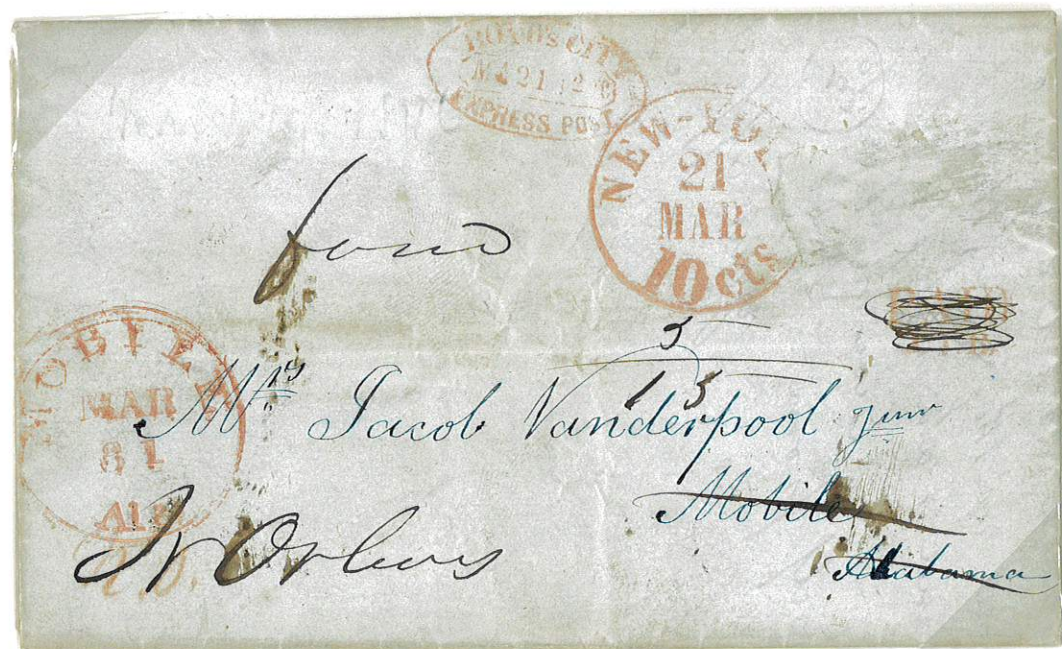 BOYD'S CITY
MA 21 12
EXPRESS POST
NEW-YOR
21
MAR
10 cts
PAID
5
15
MOBILE
MAR
31
ALA
Mrs Jacob Vanderpool Junr
Mobile
Alabama
N Orleans